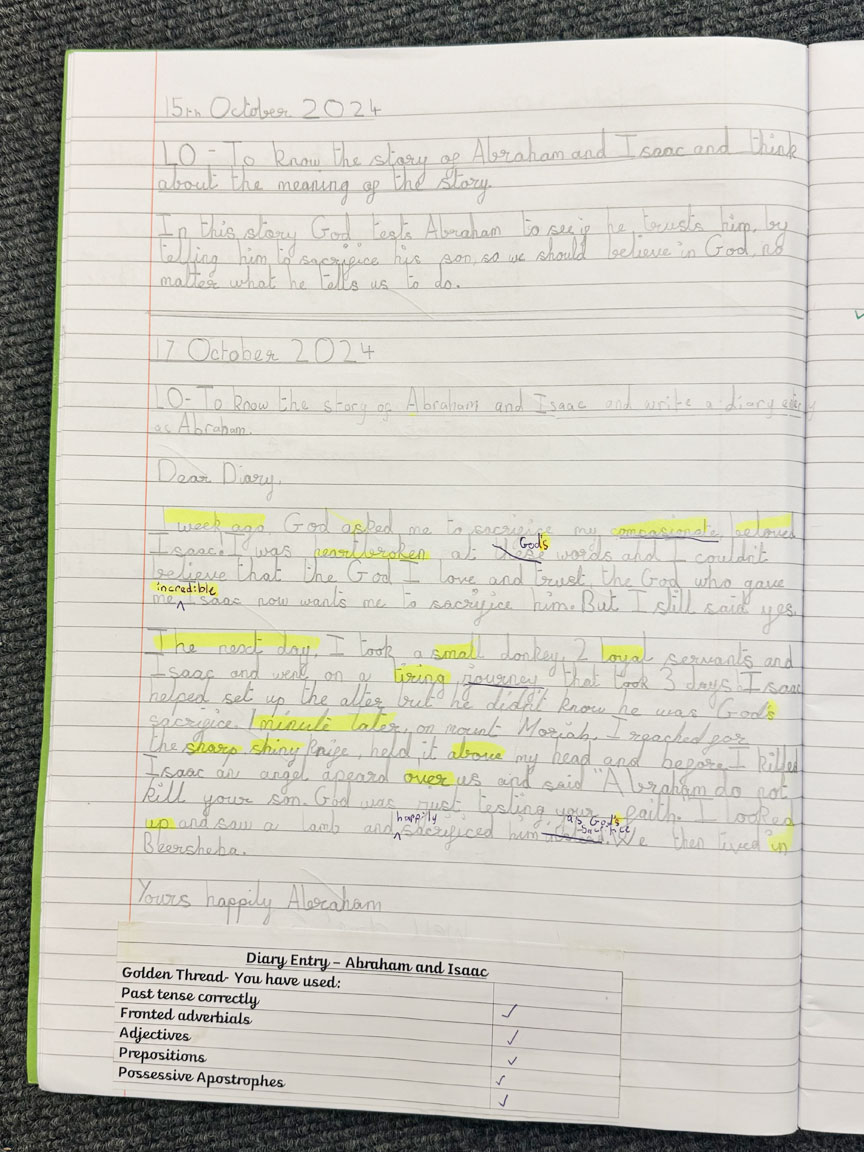 15th October 2024
LO - To know the story of Abraham and Isaac and think
about the meaning of the story.
In this story God tests Abraham to see if he trusts him, by
telling him to sacrifice his son, so we should believe in God, no
matter what he tells us to do.
17 October 2024
LO- To know the story of Abraham and Isaac and write a diary entry
as Abraham.
Dear Diary,
1 week ago, God asked me to sacrifice my compasionate, beloved
Isaac. I was heartbroken at these God's words and I couldn't
believe that the God I love and trust, the God who gave
me incredible Isaac now wants me to sacrifice him. But I still said yes.
The next day, I took a small donkey, 2 loyal servants and
Isaac and went on a tiring journey that took 3 days! Isaac
helped set up the alter but he didn't know he was God's
sacrifice. 1 minute later, on mount Moriah, I reached for
the sharp shiny knife, held it above my head and before I killed
Isaac an angel apeard over us and said "Abraham do not
kill your son. God was just testing your faith. I looked
up and saw a lamb and happily sacrificed him as God's sacrifice. We then lived in
Beersheba.
Yours happily Abraham
Diary Entry – Abraham and Isaac
Golden Thread- You have used:
Past tense correctly
Fronted adverbials
Adjectives
Prepositions
Possessive Apostrophes